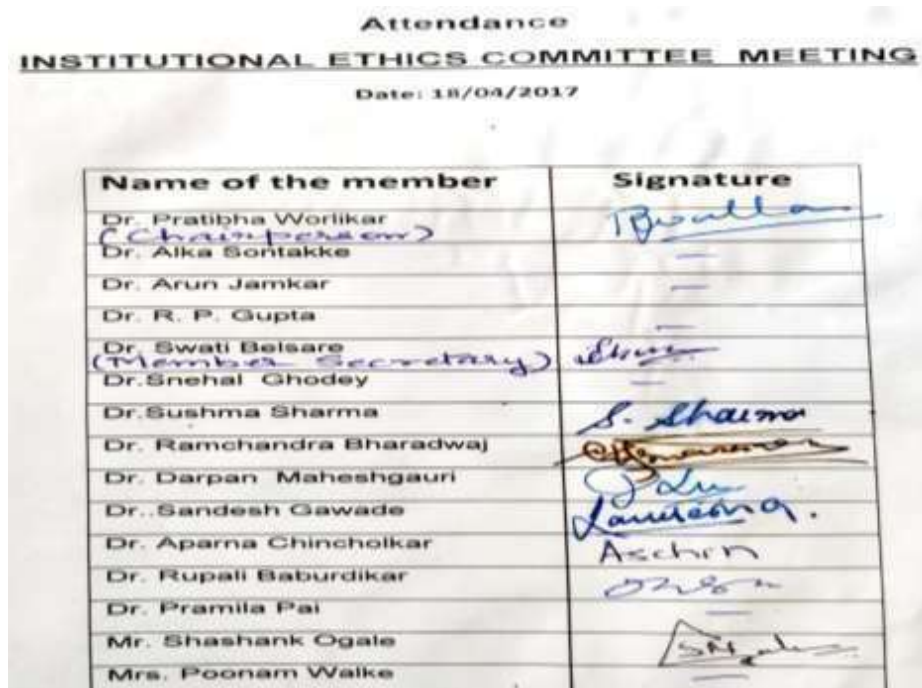 Attendance
INSTITUTIONAL ETHICS COMMITTEE MEETING
Date: 18/04/2017
Name of the member Signature
Dr. Pratibha Worlikar
(Chairperson)
Dr. Alka Sontakke —
Dr. Arun Jamkar —
Dr. R. P. Gupta —
Dr. Swati Belsare
(Member Secretary)
Dr.Snehal Ghodey —
Dr.Sushma Sharma S. Sharma
Dr. Ramchandra Bharadwaj
Dr. Darpan Maheshgauri
Dr..Sandesh Gawade
Dr. Aparna Chincholkar Aschin
Dr. Rupali Baburdikar
Dr. Pramila Pai —
Mr. Shashank Ogale
Mrs. Poonam Walke —